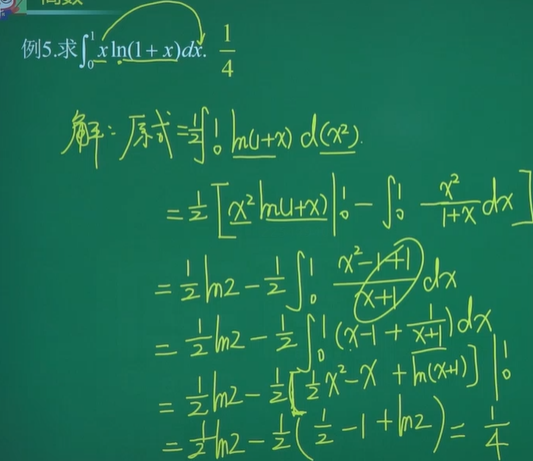 高数
例5.求∫₀¹ x ln(1+x)dx. 1/4
解：原式=1/2∫₀¹ ln(1+x) d(x²).
=1/2[x² ln(1+x)|₀¹ - ∫₀¹ x²/(1+x) dx]
=1/2 ln2 - 1/2∫₀¹ (x²-1+1)/(x+1) dx
=1/2 ln2 - 1/2∫₀¹ (x-1+1/(x+1))dx
=1/2 ln2 - 1/2[1/2x²-x+ln(x+1)]|₀¹
=1/2 ln2 - 1/2(1/2-1+ln2)=1/4